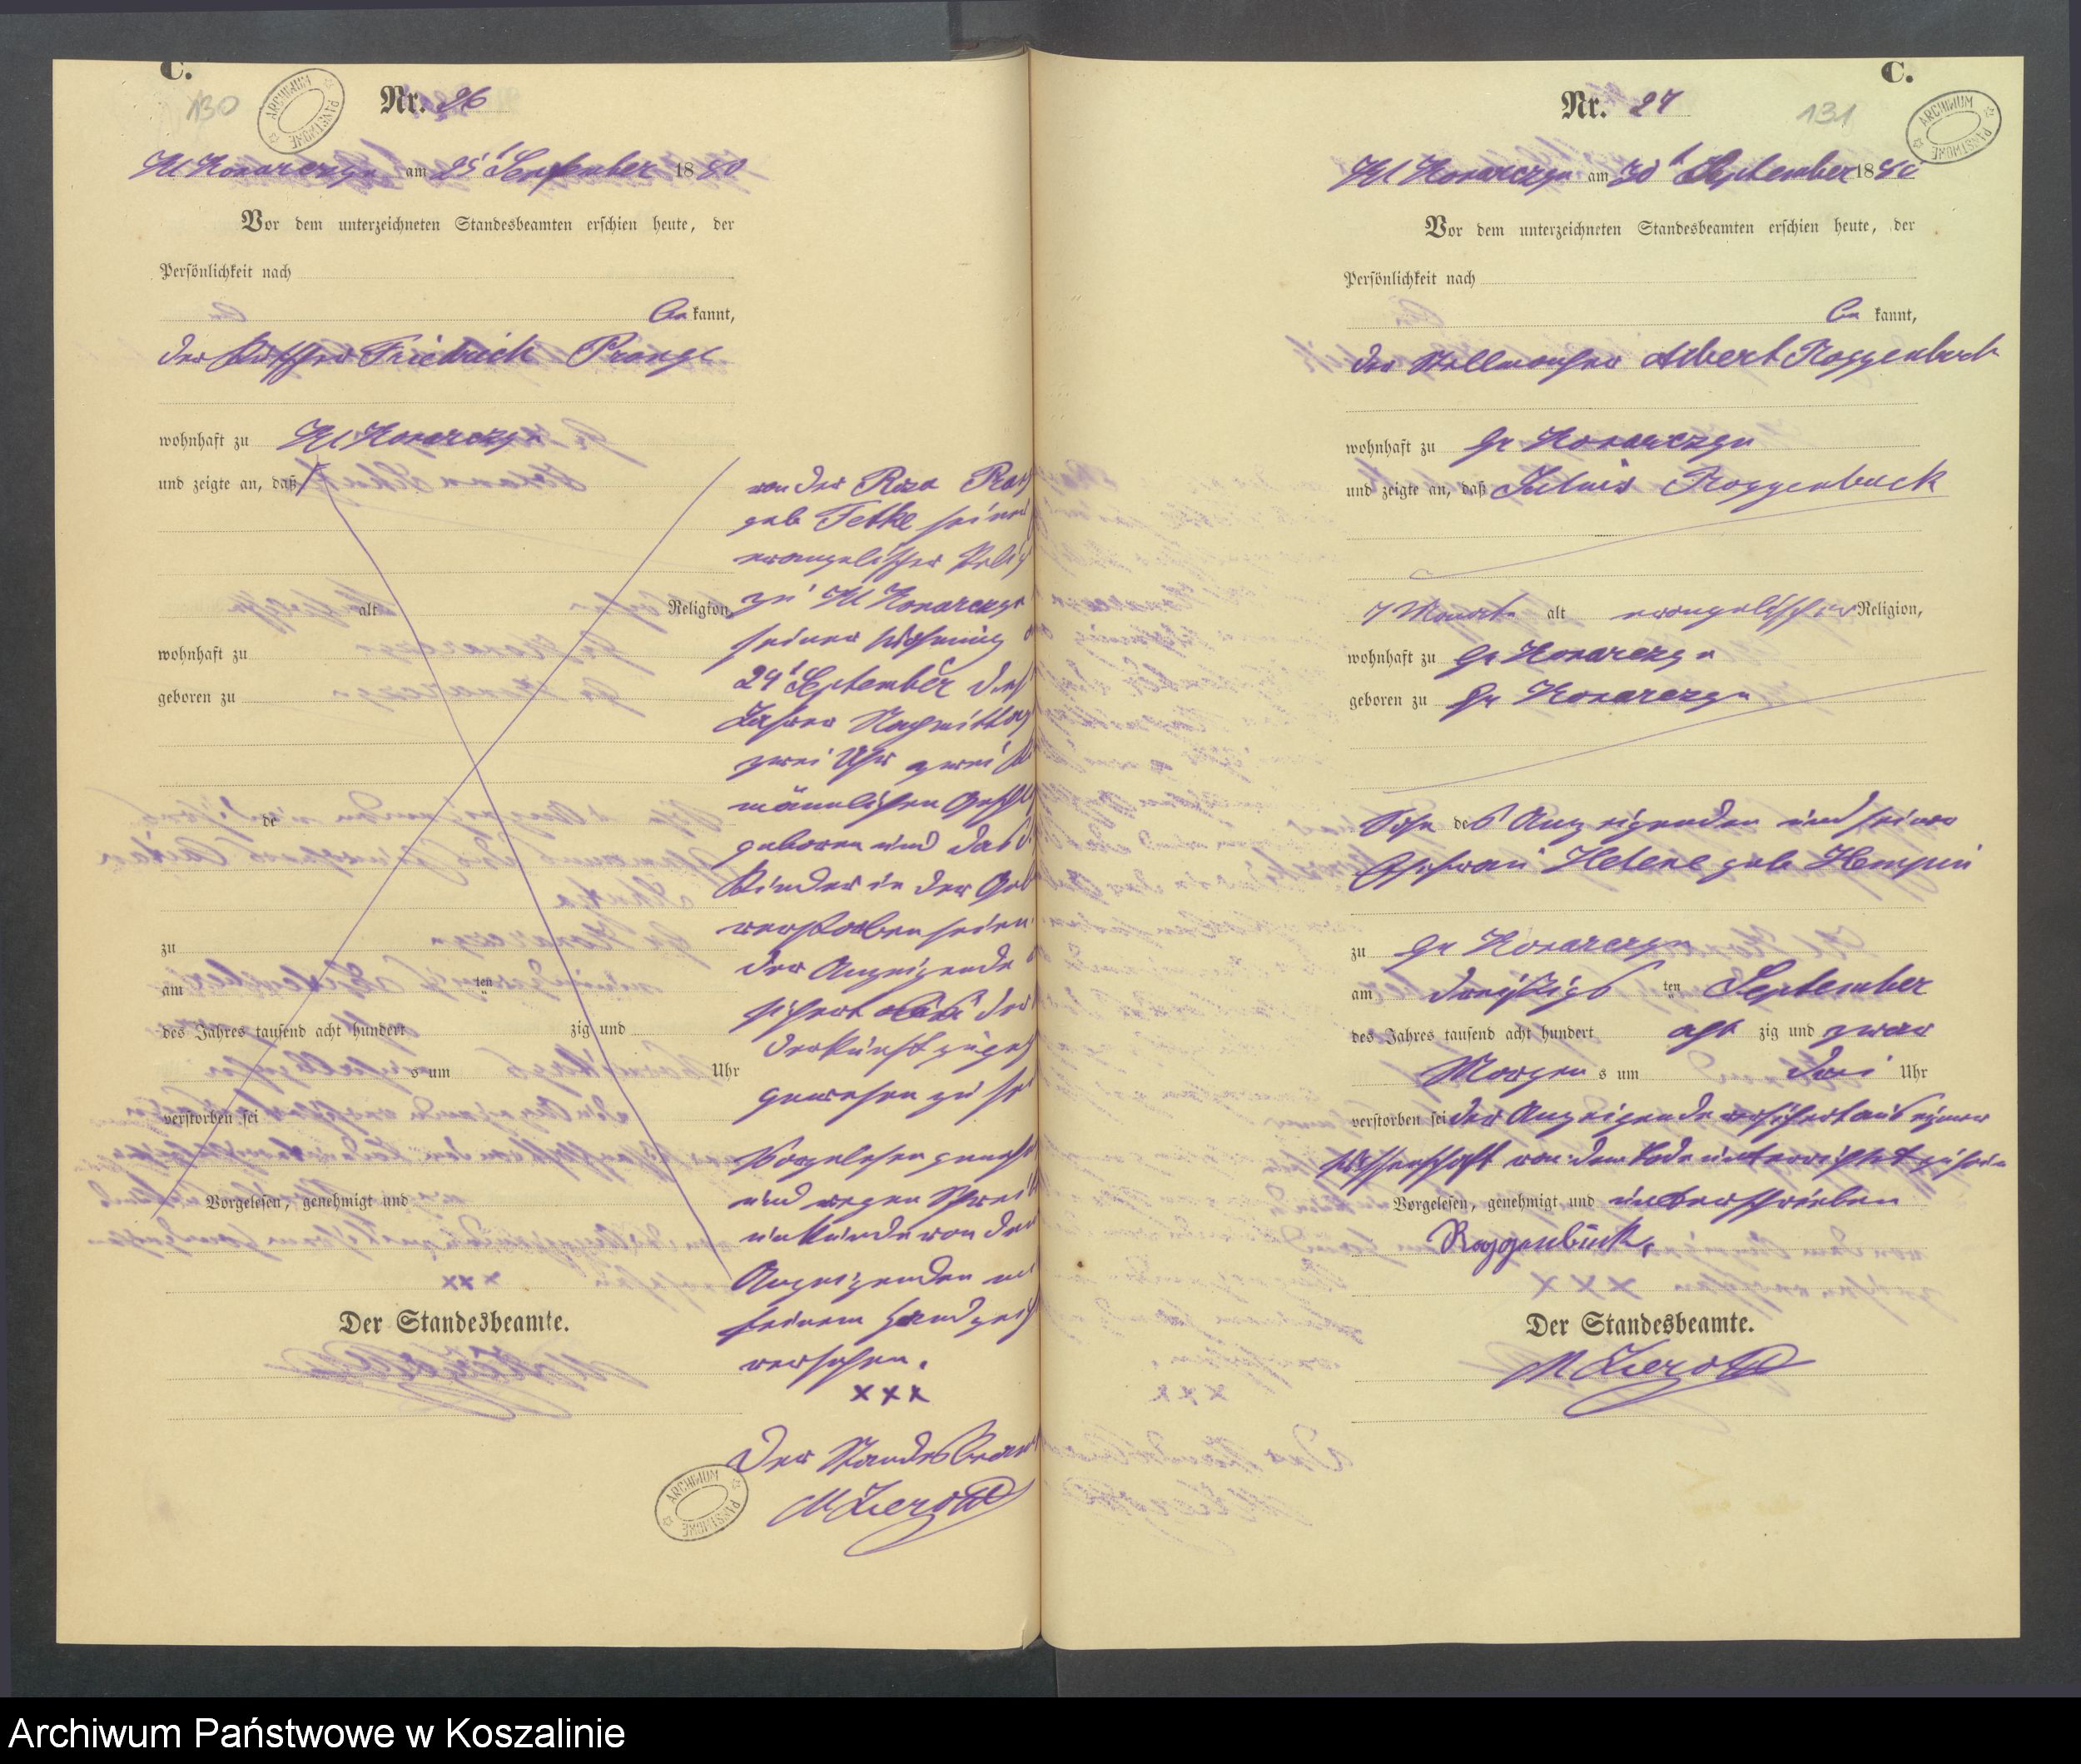 C.
130
ARCHIWUM PAŃSTWOWE
Nr. 26
Kl Konarczyn am 25t September 1880
Vor dem unterzeichneten Standesbeamten erschien heute, der
Persönlichkeit nach
be kannt,
der Kutscher Friedrich Prange
wohnhaft zu Kl Konarczyn
und zeigte an, daß
alt Religion,
wohnhaft zu
geboren zu
de
zu
am ten
des Jahres tausend acht hundert zig und
s um Uhr
verstorben sei
Vorgelesen, genehmigt und
Der Standesbeamte.
von der Rosa
geb Tetke seiner
evangelischer
zu Kl Konarczyn
seiner Wohnung
24t September
Jahres Nachmittag
zwei Uhr zwei
männlichen
geboren und das
Kinder in der
verstorben seien.
der Anzeigende
sichert
gewesen zu
Vorgelesen
und wegen
unkunde von dem
Anzeigenden
seinem
versehen.
xxx
Der
M Zierold
ARCHIWUM PAŃSTWOWE
C.
131
ARCHIWUM PAŃSTWOWE
Nr. 27
Kl Konarczyn am 30t September 1880
Vor dem unterzeichneten Standesbeamten erschien heute, der
Persönlichkeit nach
be kannt,
der Stellmacher Albert Roggenbuck
wohnhaft zu Gr Konarczyn
und zeigte an, daß Julius Roggenbuck
7 Monate alt evangelischer Religion,
wohnhaft zu Gr Konarczyn
geboren zu Gr Konarczyn
Sohn des Anzeigenden und seiner
Ehefrau Helene geb Hempin
zu Gr Konarczyn
am dreißigs ten September
des Jahres tausend acht hundert acht zig und zwar
Morgen s um drei Uhr
verstorben sei der Anzeigende versichert aus eigener
Wissenschaft von dem Tode unterrichtet zu sein
Vorgelesen, genehmigt und unterschrieben
Roggenbuck.
Der Standesbeamte.
M Zierold
Archiwum Państwowe w Koszalinie